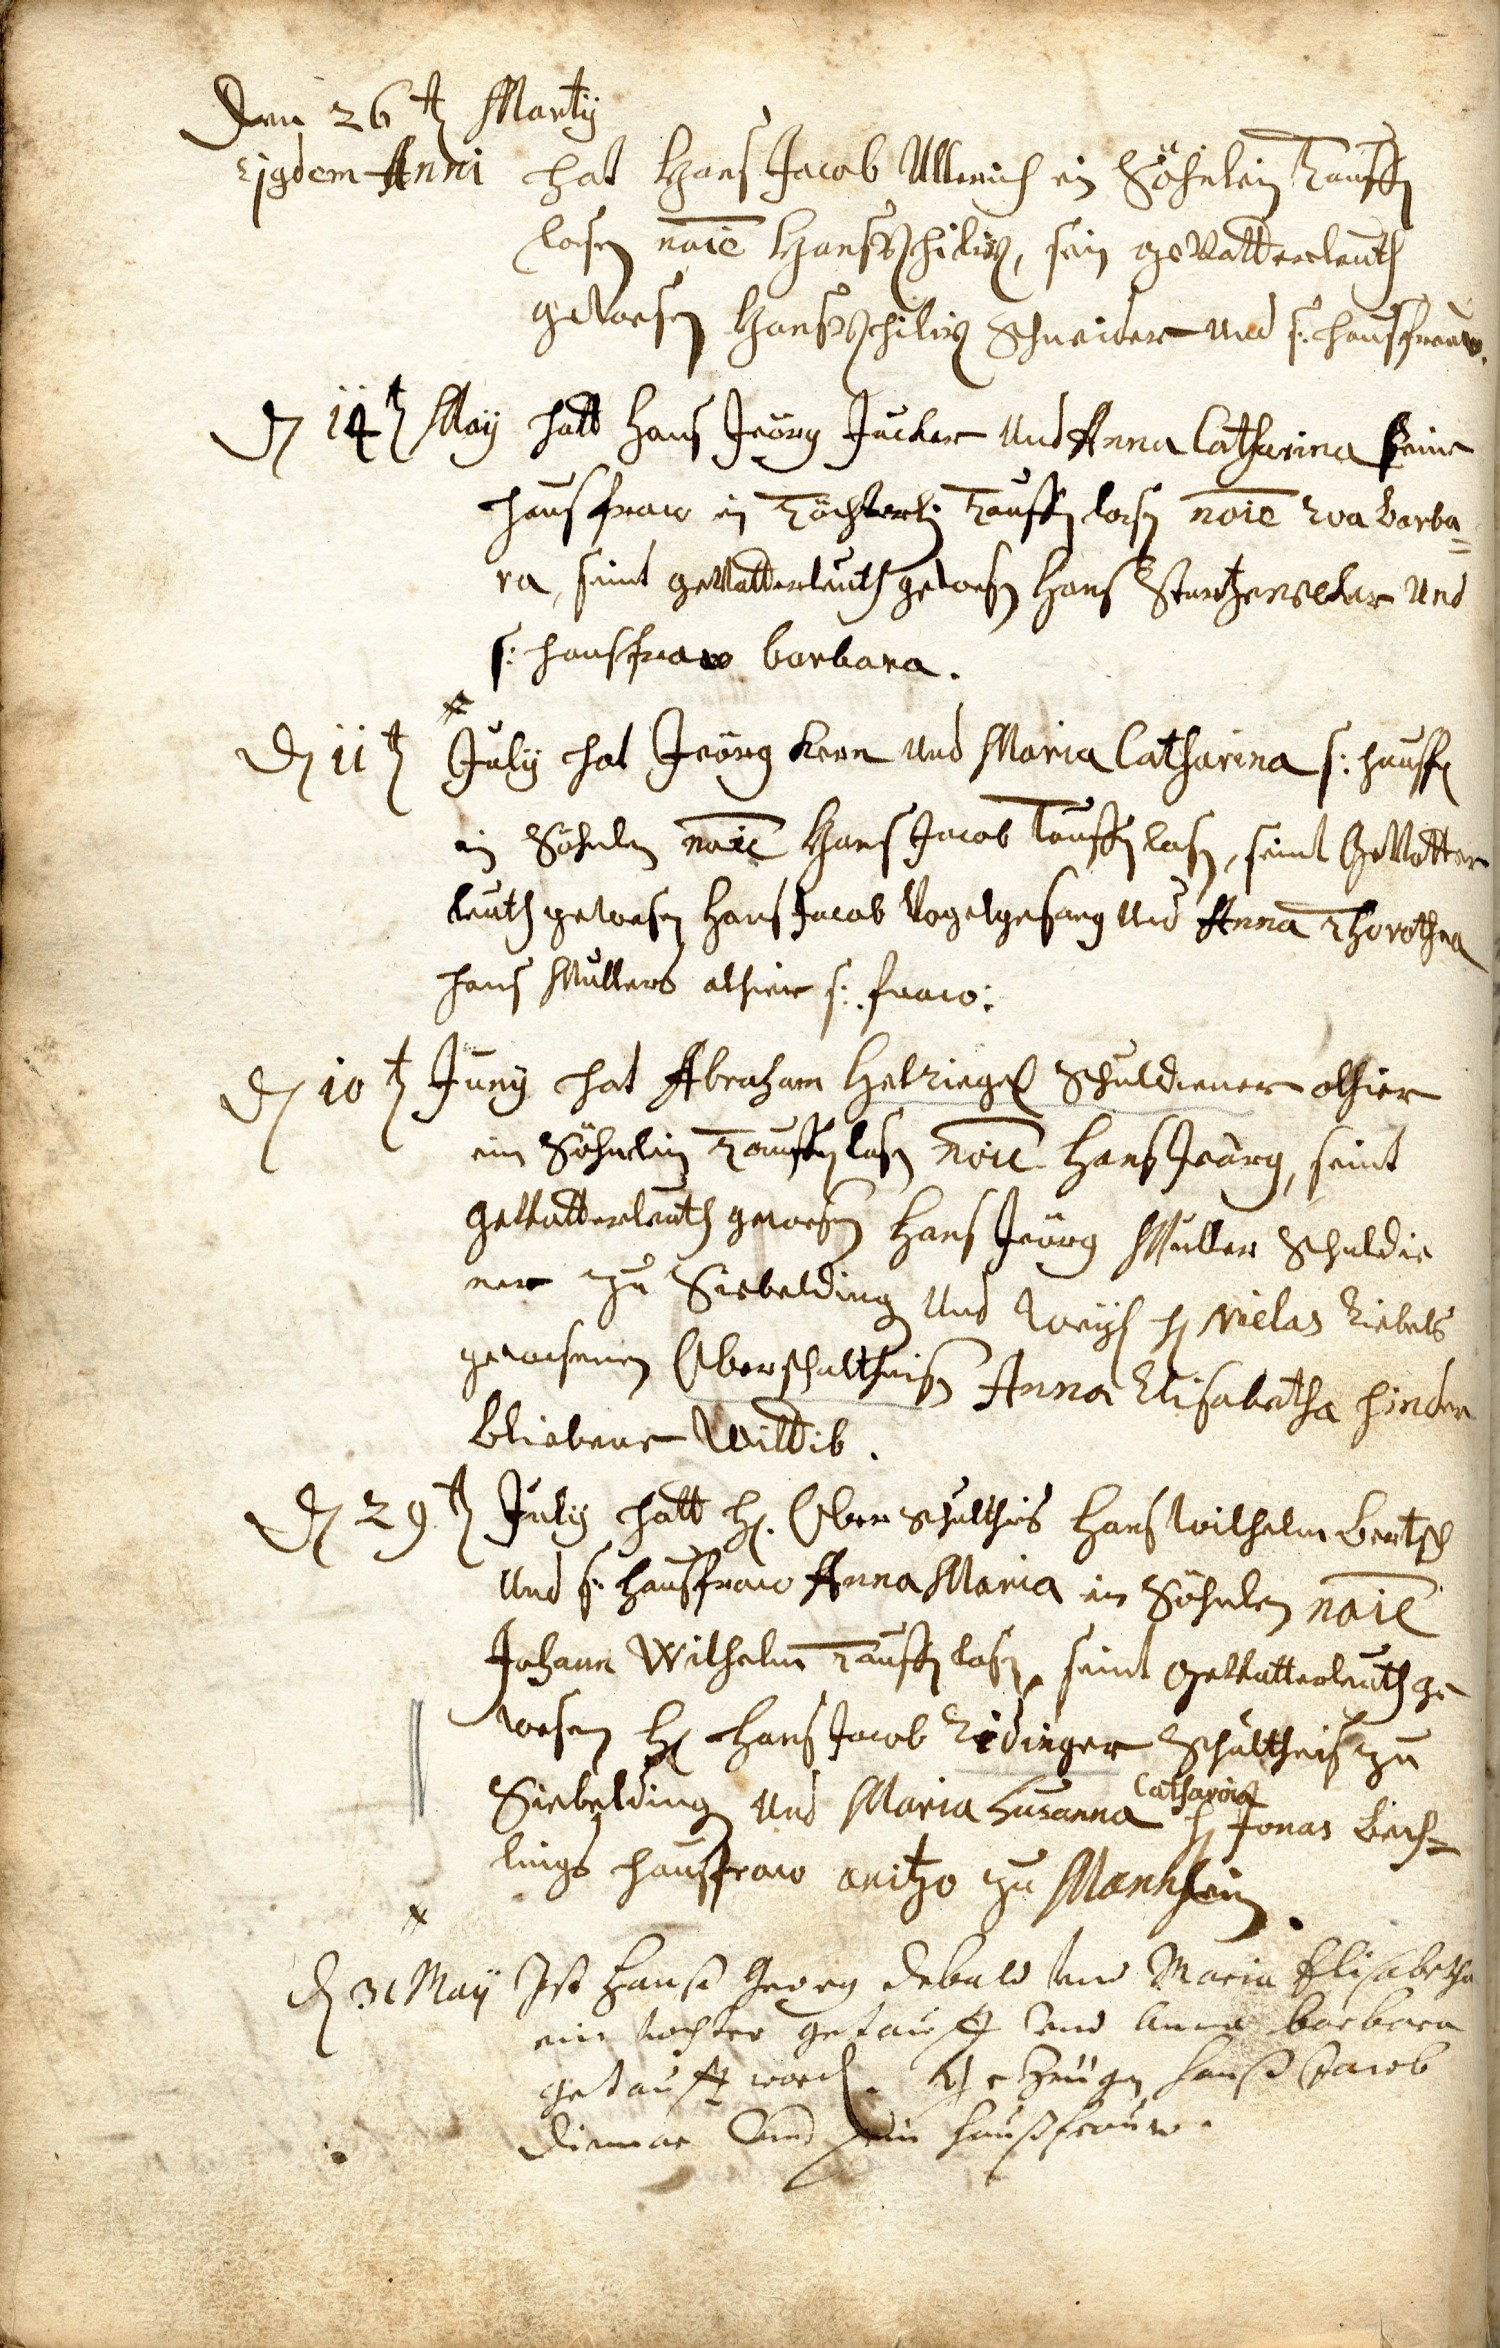 Den 26t Martÿ
ejusdem Anni hat Hans Jacob Ullerich ein Söhnlein Tauffen
lasen noie Hans Philips, sein geVatterleuth
geWesen Hans Philips Schneider und s: hausfrauw.
Den 14t Maÿ hatt Hans Jeörg Jucker und Anna Catharina seine
hausfraw ein Töchterlin Tauffen lasen noie Eva Barba=
ra, seint geVatterleuth gewesen Hans und
s: hausfraw Barbara.
Den 11t Julÿ hat Jeörg Kern und Maria Catharina s: hausf
ein Söhnlen noie Hans Jacob Tauffen lasen, seint GeVatter
leuth geWesen Hans Jacob Vogelgesang und Anna Thorothea
Hans Mullers alhier s: fraw:
Den 10t Junÿ hat Abraham Helriegel Schuldiener alhier
ein Söhnlein Tauffen lasen noie Hans Jeörg, seint
geVatterleuth gewesen Hans Jeörg Müller Schuldie
ner zu Siebelding und Weÿl H Niclas Liebels
gewesenen Oberschultheisen Anna Elisabetha hinder
bliebene Wittib.
Den 29t Julÿ hatt H. Oberschultheis Hans Wilhelm Bertsch
und s: hausfraw Anna Maria ein Söhnlen noie
Johann Wilhelm Tauffen lasen, seint geVatterleuth ge
wesen H Hans Jacob Rödinger Schultheis zu
Siebelding und Maria Susanna Catharina H Jonas Bech=
lings hausfraw anitzo zu Manheim.
Den 31 Maÿ Ist Hanß Georg Debald und Maria Elisabetha
ein tochter getaufft und Anna Barbara
getaufft word. Zeugen Hanß Jacob
Diemar und sein Haußfrauw.